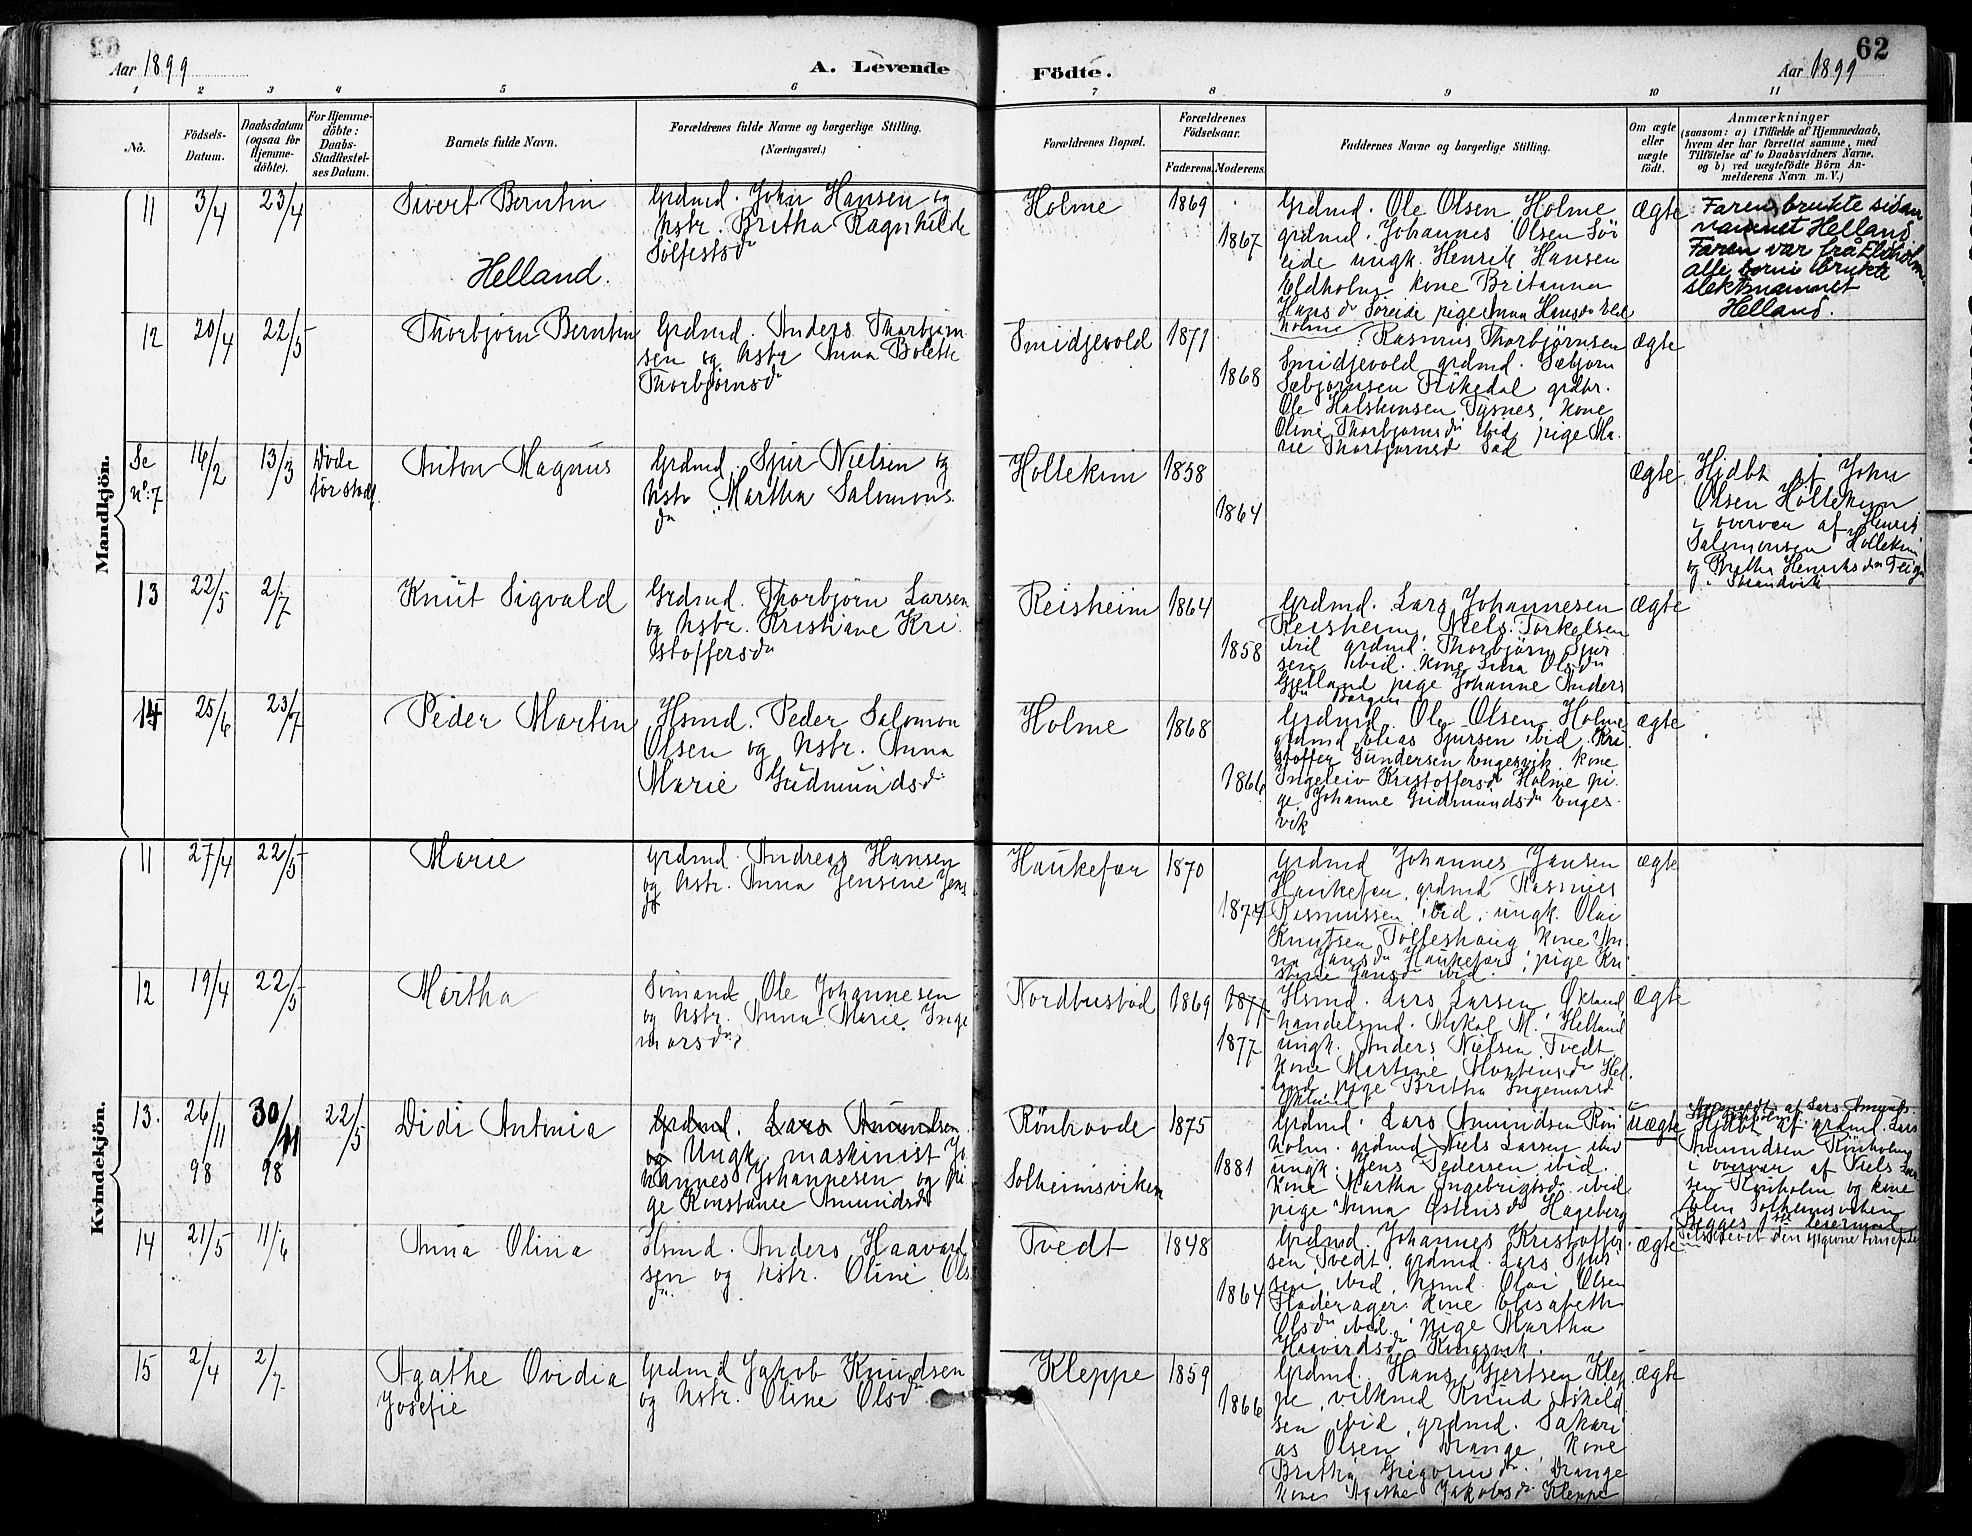 Aar 1899
A. Levende
Födte.
62
Aar 1899
1 2 3 4 5 6 7 8 9 10 11
No.
Födsels-
Datum.
Daabsdatum
(ogsaa for
Hjemme-
döbte).
For Hjemme-
döbte:
Daabs-
Stadfæstel-
ses Datum.
Barnets fulde Navn.
Forældrenes fulde Navne og borgerlige Stilling.
(Næringsvei.)
Forældrenes Bopæl.
Forældrenes
Födselsaar.
Faderens. Moderens.
Faddernes Navne og borgerlige Stilling.
Om ægte
eller
uægte
födt.
Anmærkninger
(saasom: a) i Tilfælde af Hjemmedaab,
hvem der har forrettet samme, med
Tilföielse af to Daabsvidners Navne,
og b) ved uægtefödte Börn An-
melderens Navn m. V.)
Mandkjön.
11 3/4 23/4
Sivert Berntin
Helland.
Grdmd. John Hansen og
hstr. Britha Ragnhilde
Sølfestsdr
Holme
1869
1867
Grdmd. Ole Olsen Holme
grdmd. Johannes Olsen Söi
eide ungk. Henrik Hansen
Eldholm kone Britanna
Hansdr Søreide pige Anna Hansdr Eld
holm
ægte
Faren brukte sidan
namnet Helland
Faren var frå Eldholm
Alle borni brukte
slektsnamnet
Helland.
12 20/4 22/5
Thorbjörn Berntin
Grdmd. Anders Thorbjörn
sen og hstr Anna Bolette
Thorbjörnsdr
Smidjevold
1871
1868
Rasmus Thorbjörnsen
Smidjevold grdmd. Sæbjörn
Sæbjörnsen Fiikedal grdbr.
Ole Halstensen Tysnes, kone
Oline Thorbjörnsdr ibid, pige Ma-
rie Thorbjörnsdr
ægte
Se
no. 7
16/2 13/3
Döde
för stadf.
Anton Magnus
Grdmd. Sjur Nielsen og
hstr Martha Salomons
dr
Holtekim
1858
1864
ægte
Hjdbt af John
Olsen Holtekim
i overvær af Henrik
Salomonsen Holtekim
og Britha Henriksdr Teige
i Strandvik
13 22/5 2/7
Knut Sigvald
Grdmd. Thorbjörn Larsen
og hstr. Kristiane Kri
stoffersdr
Reisheim
1864
1858
Grdmd. Lars Johannesen
Reisheim, Niels Torkelsen
ibid grdmd. Thorbjörn Sjur
sen ibid. kone Sina Olsdr
Gjelland pige Johanne Anders
dr Borgen
ægte
14 25/6 23/7
Peder Martin
Hsmd. Peder Salomon
Olsen og hstr. Anna
Marie Gudmundsdr
Holme
1868
1866
Grdmd. Ole Olsen Holme
grdmd Elias Sjursen ibid. Kri
stoffer Gundersen Engesvik. kone
Ingeleiv Kristoffersdr Holme pi
ge Johanne Gudmundsdr Enges-
vik
ægte
Kvindekjön.
11 27/4 22/5
Marie
Grdmd. Andreas Hansen
og hstr. Anna Jensine Jens
dr
Haukefær
1870
1874
Grdmd Johannes Jansen
Haukefær, grdmd Rasmus
Rasmussen ibid, ungk. Olai
Knutsen Tolleshaug kone An-
na Jansdr Haukefær, pige Kri
stine Jansdr ibid.
ægte
12 19/4 22/5
Martha
Sömand Ole Johannesen
og hstr. Anna Marie Inge
marsdr
Nordbustad
1869
1877
1877
Hsmd. Lars Larsen Økland
handelsmd. Mikal M. Helland
ungk. Anders Nielsen Tvedt
kone Martine Mortensdr Hel
land pige Britha Ingemarsd
Økland
ægte
13. 26/11 98 30/11 98 22/5
Didi Antonia
Grdmd. Lars Amundsen
og Ungk. maskinist Jo
hannes Johannesen og pi
ge Konstance Amundsdr
Rönhovde
Solheimsviken
1875
1881
Grdmd. Lars Amundsen Rön
holm. grdmd Niels Larsen ibid
ungk. Jens Pedersen ibid.
Kone Martha Ingebrigtsdr ibid
pige Anna Østensdr Hageberg
uægte
Anmeldt af Lars Amunds
Hjdbt af grdmd. Lars
Amundsen Rönholm
i overvær af Niels Lar
sen Rönholm og kone
Elen Solheimsviken
Begges 1ste leiermaal
14 21/5 11/6
Anna Olina
Hsmd. Anders Haavard
sen og hstr. Oline Ols
dr
Tvedt
1848
1864
Grdmd. Johannes Kristoffer
sen Tvedt, grdmd. Lars Sjur
sen ibid, hsmd Olai Olsen
Fladerager kone Elisabeth
Olsdr ibid, pige Martha
Haavardsdr Kingsvik.
ægte
15 2/4 2/7
Agathe Ovidia
Josefie
Grdmd Jakob Knudsen
og hstr. Oline Olsdr
Kleppe
1859
1866
Grdmd. Hans Gjertsen Klep
pe, vilkmd Knud Askild
sen ibid, grdmd. Sakari
as Olsen Drange kone
Britha Gregoriusdr. Drange
kone Agathe Jakobsdr Kleppe
ægte